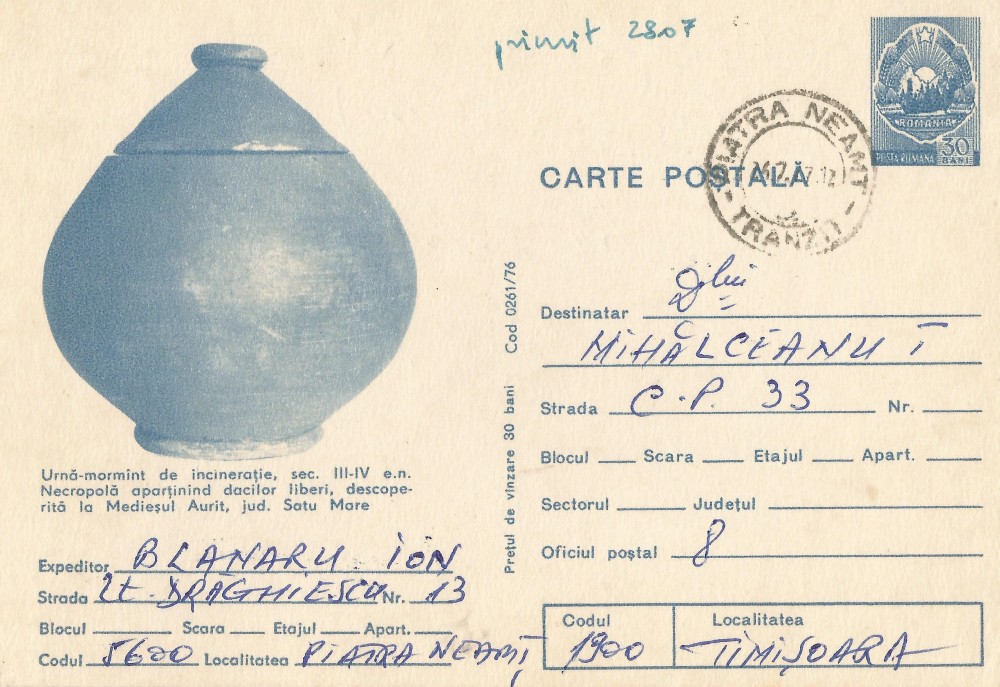 primit 2807
ROMANIA
POSTA ROMANA 30 BANI
PIATRA NEAMT
TRANZIT
CARTE POȘTALĂ
Urnă-mormînt de incinerație, sec. III-IV e.n.
Necropolă aparținînd dacilor liberi, descope-
rită la Medieșul Aurit, jud. Satu Mare
Expeditor BLANARU ION
Strada Lt. DRĂGHIESCU Nr. 13
Blocul Scara Etajul Apart.
Codul 5600 Localitatea PIATRA NEAMȚ
Prețul de vînzare 30 bani Cod 0261/76
Destinatar
MIHĂLCEANU T
Strada C.P. 33 Nr.
Blocul Scara Etajul Apart.
Sectorul Județul
Oficiul poștal 8
Codul Localitatea
1900 TIMIȘOARA